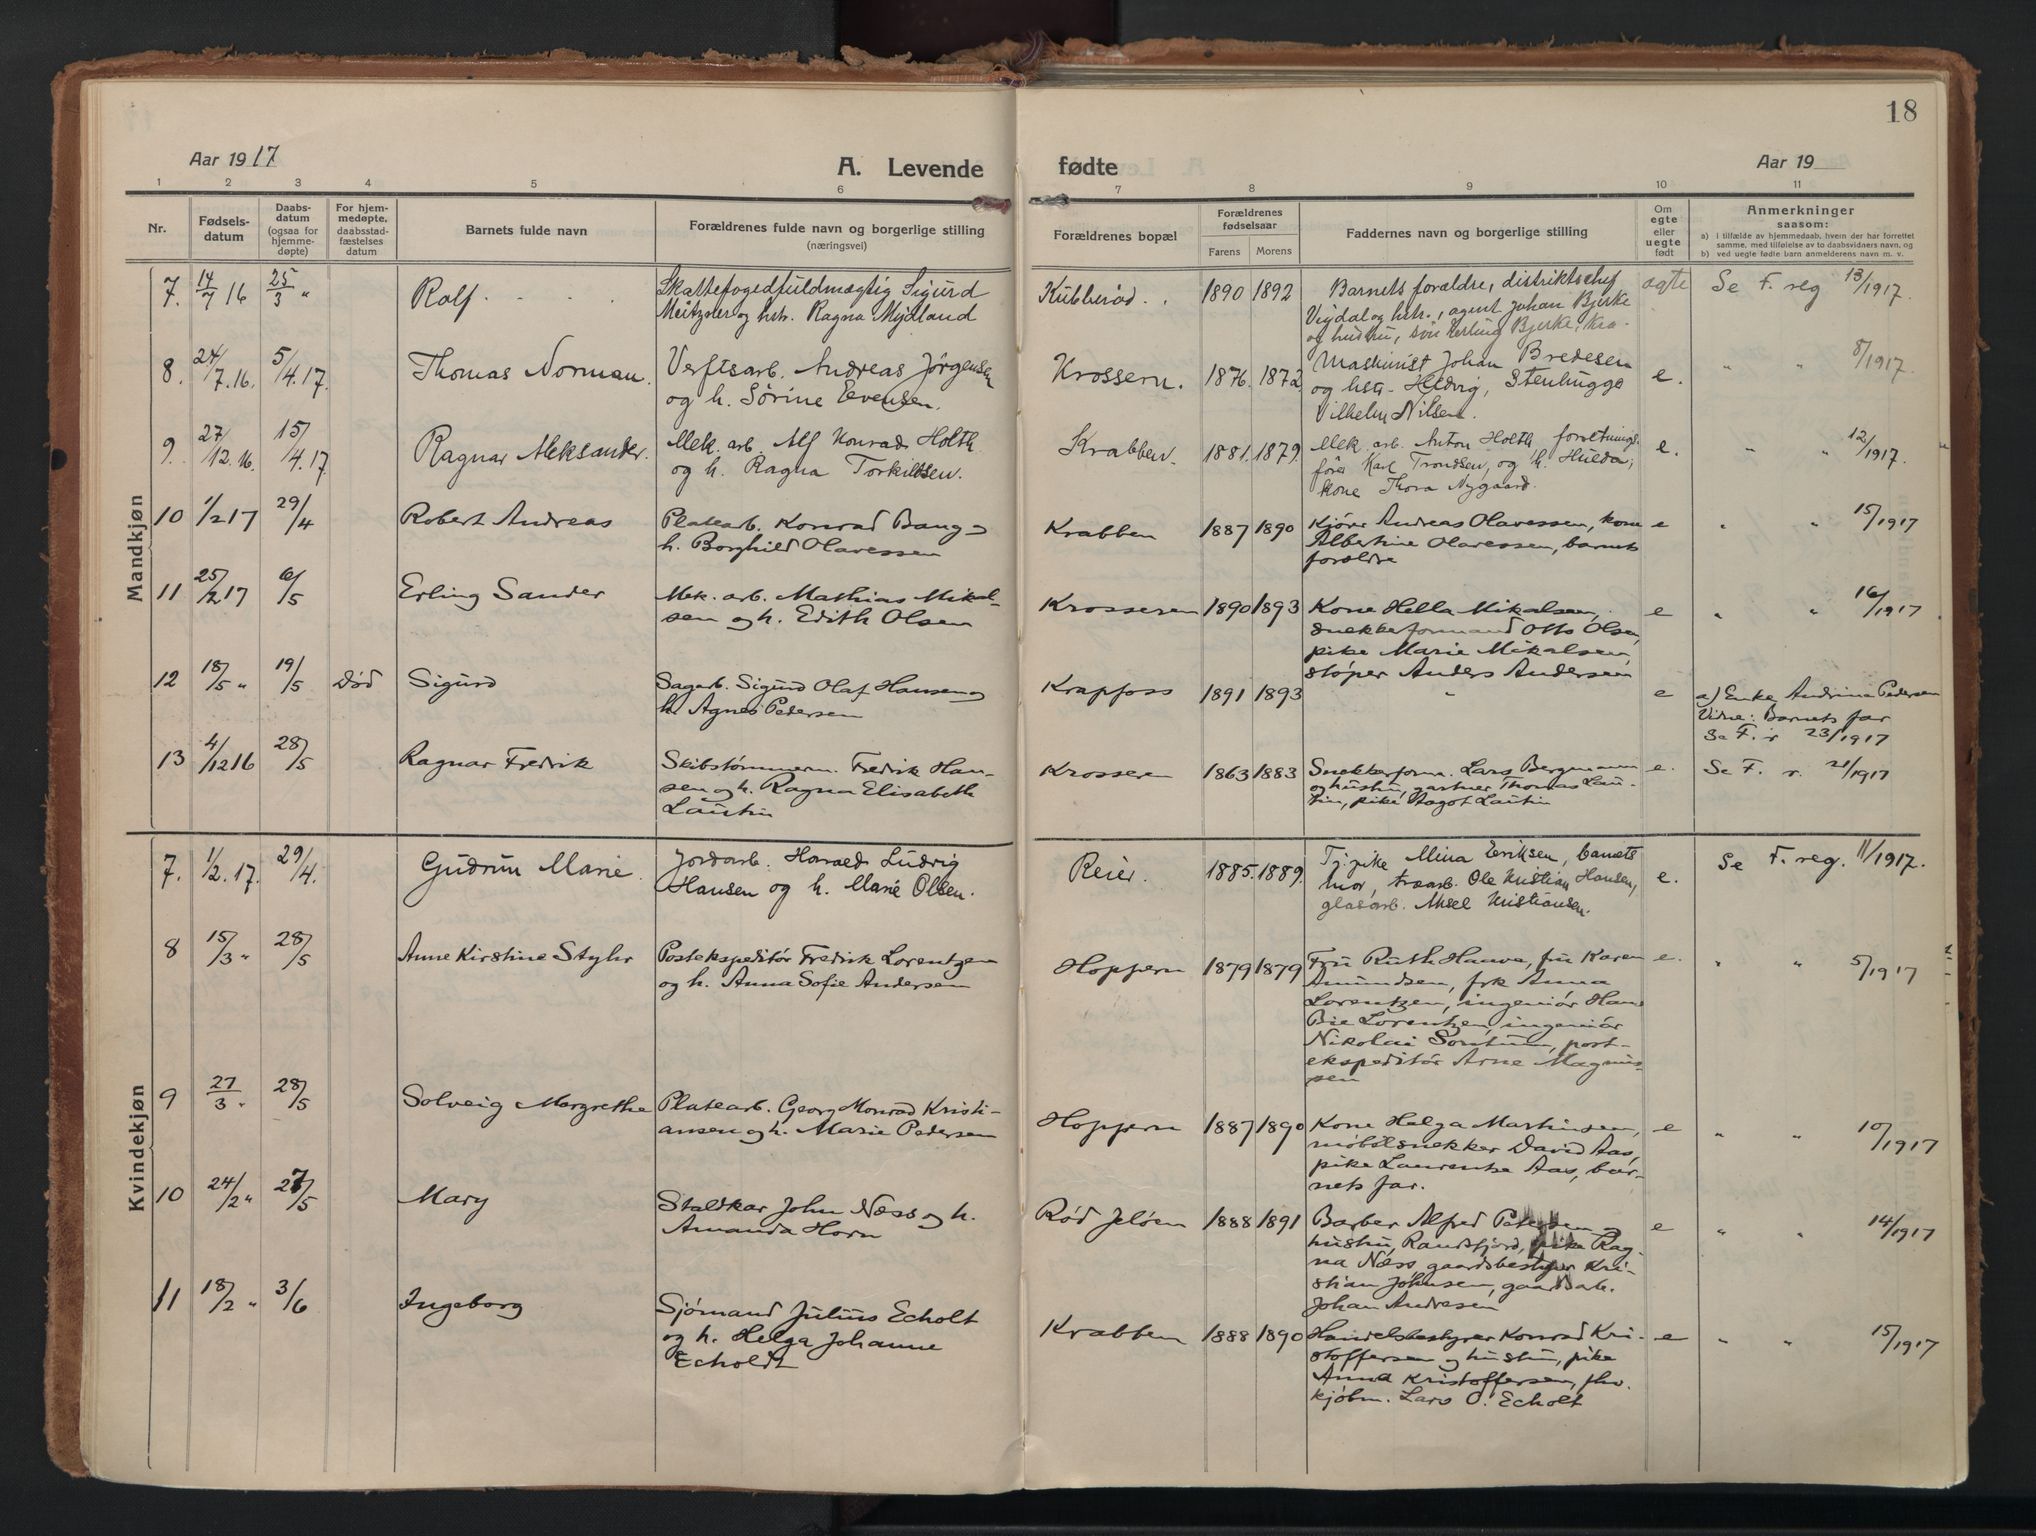 18
Aar 1917
A. Levende fødte
Aar 19
1 2 3 4 5 6 7 8 9 10 11
Nr.
Fødsels-
datum
Daabs-
datum
(ogsaa for
hjemme-
døpte)
For hjem-
medøpte,
daabsstad-
fæstelses
datum
Barnets fulde navn
Forældrenes fulde navn og borgerlige stilling
(næringsvei)
Forældrenes bopæl
Forældrenes
fødselsaar
Farens Morens
Faddernes navn og borgerlige stilling
Om
egte
eller
uegte
født
Anmerkninger
saasom:
a) i tilfælde av hjemmedaab, hvem der har forrettet
samme, med tilføielse av to daabsvidners navn, og
b) ved uegte født barn anmelderens navn m. v.
Mandkjøn
7. 14/7 16 25/3 " Rolf
Skattefogedfuldmægtig Sigurd
Meitzner og hstr. Ragna Mydland
Kubberød 1890 1892
Barnets forældre, distriktschef
Vigdal og hstr., agent Johan Bjerke
og hustru, Erling Bjerke, Kra.
egte Se F. reg 13/1917.
8. 24/7. 16. 5/4. 17. Thomas Norman.
Verftsarb. Andreas Jørgensen
og h. Sørine Evensen.
Krossern. 1876. 1872
Maskinist Johan Bredesen
og hstr. Hedvig, Stenhugger
Vilhelm Nilsen.
e. " " 8/1917.
9. 27/12. 16. 15/4. 17. Ragnar Aleksander.
Mek. arb. Alf Konrad Holth
og h. Ragna Torkildsen.
Krabben. 1881. 1879.
Mek. arb. Anton Holth, forretnings-
fører Karl Trondsen, og h. Hulda,
kone Thora Nygaard.
e. " " 12/1917.
10 1/2 17 29/4 Robert Andreas
Platearb. Konrad Bang og
h. Borghild Olavessen
Krabben 1887 1890
Kjører Andreas Olavessen, kone
Albertine Olavessen, barnets
forældre
e " " 15/1917
11 25/2 17 6/5 Erling Sander
Mek. arb. Mathias Mikal-
sen og h. Edith Olsen
Krosseren 1890 1893
Kone Hella Mikalsen,
snekkerformand Otto Olsen,
pike Marie Mikalsen,
støper Anders Andersen
e " " 16/1917
12 18/5 " 19/5 Død Sigurd
Sagarb. Sigurd Olaf Hansen og
h. Agnes Pedersen
Krapfoss 1891 1893 "
e a) Enke Andrina Pedersen
Vidne: Barnets far
Se F. r 23/1917
13 4/12 16 28/5 Ragnar Fredrik
Skibstømmerm. Fredrik Han-
sen og h. Ragna Elisabeth
Laustin
Krosseren 1863 1883
Snekkerform. Lars Bergmann
og hustru, gartner Thomas Lau-
tin, pike Aagot Lautin
e. Se F. r. 21/1917
Kvindekjøn
7. 1/2. 17. 29/4. Gudrun Marie.
Jordarb. Harald Ludvig
Hansen og h. Marie Olsen.
Reier. 1885. 1889.
Tj. pike Mina Eriksen, barnets
mor, træarb. Ole Kristian Hansen,
glasarb. Aksel Kristiansen.
e. Se F. reg. 11/1917.
8 15/3 " 28/5 Anne Kirstine Styhr
Postekspeditør Fredrik Lorentzen
og h. Anna Sofie Andersen
Hoppern 1879 1879
Fru Ruth Hauva, fru Karen
Amundsen, frk Anna
Lorentzen, ingeniør Hans
Bie Lorentzen, ingeniør
Nikolai Sontum, post-
ekspeditør Arne Magnus-
sen
e. " " 5/1917
9 27/3 " 28/5 Solveig Margrethe
Platearb. Georg Monrad Kristi-
ansen og h. Marie Pedersen
Hoppern 1887 1890
Kone Helga Martinsen,
møbelsnekker David Aas,
pike Laurentse Aas, bar-
nets far.
e " " 10/1917
10 24/2 " 27/5 Mary
Staldkar John Næss og h.
Amanda Horn
Rød Jeløen 1888 1891
Barber Alfred Petersen og
hustru, Randsfjord, pike Rag-
na Næss gaardsbestyrer Kri-
stian Johnsen, gaardsarb.
Johan Andresen
e " " 14/1917
11 18/2 " 3/6 Ingeborg
Sjømand Julius Echolt
og h. Helga Johanne
Echoldt
Krabben 1888 1890
Handelsbestyrer Konrad Kri-
stoffersen og hustru, pike
Anna Kristoffersen, fhv.
kjøbm. Lars O. Echolt
e " " 15/1917